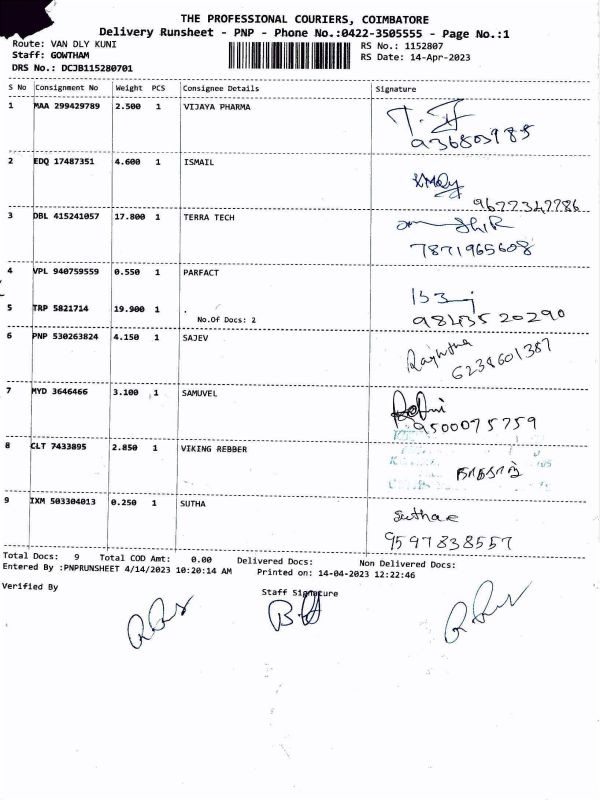 THE PROFESSIONAL COURIERS, COIMBATORE
Delivery Runsheet - PNP - Phone No.:0422-3505555 - Page No.:1
Route: VAN DLY KUNI RS No.: 1152807
Staff: GOWTHAM RS Date: 14-Apr-2023
DRS No.: DCJB115280701
S No Consignment No Weight PCS Consignee Details Signature
1 MAA 299429789 2.500 1 VIJAYA PHARMA
936803985
2 EDQ 17487351 4.600 1 ISMAIL
9677347786
3 DBL 415241057 17.800 1 TERRA TECH
7871965608
4 VPL 940759559 0.550 1 PARFACT
5 TRP 5821714 19.900 1 .
No.Of Docs: 2
9843520290
6 PNP 530263824 4.150 1 SAJEV
6238601387
7 MYD 3646466 3.100 1 SAMUVEL
9500075759
8 CLT 7433895 2.850 1 VIKING REBBER
9 IXM 503304013 0.250 1 SUTHA
Suthae
9597838557
Total Docs: 9 Total COD Amt: 0.00 Delivered Docs: Non Delivered Docs:
Entered By :PNPRUNSHEET 4/14/2023 10:20:14 AM Printed on: 14-04-2023 12:22:46
Verified By Staff Signature